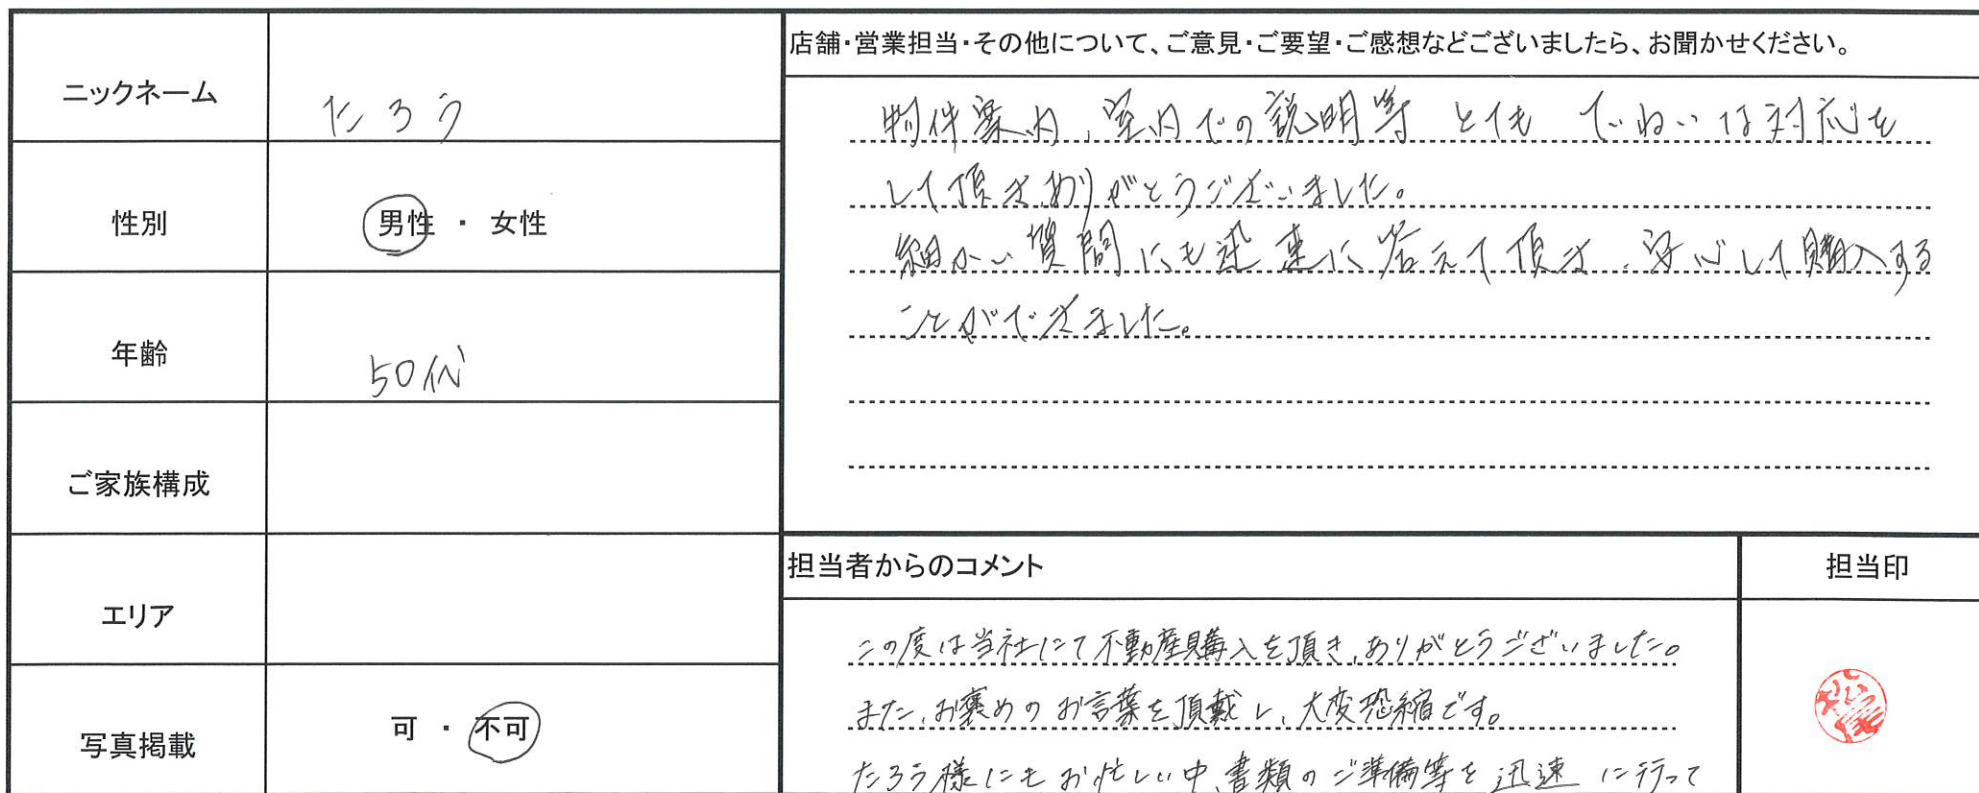 ニックネーム
たろう
性別
男性 ・ 女性
年齢
50代
ご家族構成
エリア
写真掲載
可 ・ 不可
店舗・営業担当・その他について、ご意見・ご要望・ご感想などございましたら、お聞かせください。
物件案内、室内での説明等 とても ていねいな対応を
して頂きありがとうございました。
細かい質問にも迅速に答えて頂き、安心して購入する
ことができました。
担当者からのコメント
担当印
この度は当社にて不動産購入を頂き、ありがとうございました。
また、お褒めのお言葉を頂戴し、大変恐縮です。
たろう様にもお忙しい中、書類のご準備等を迅速に行って
松尾